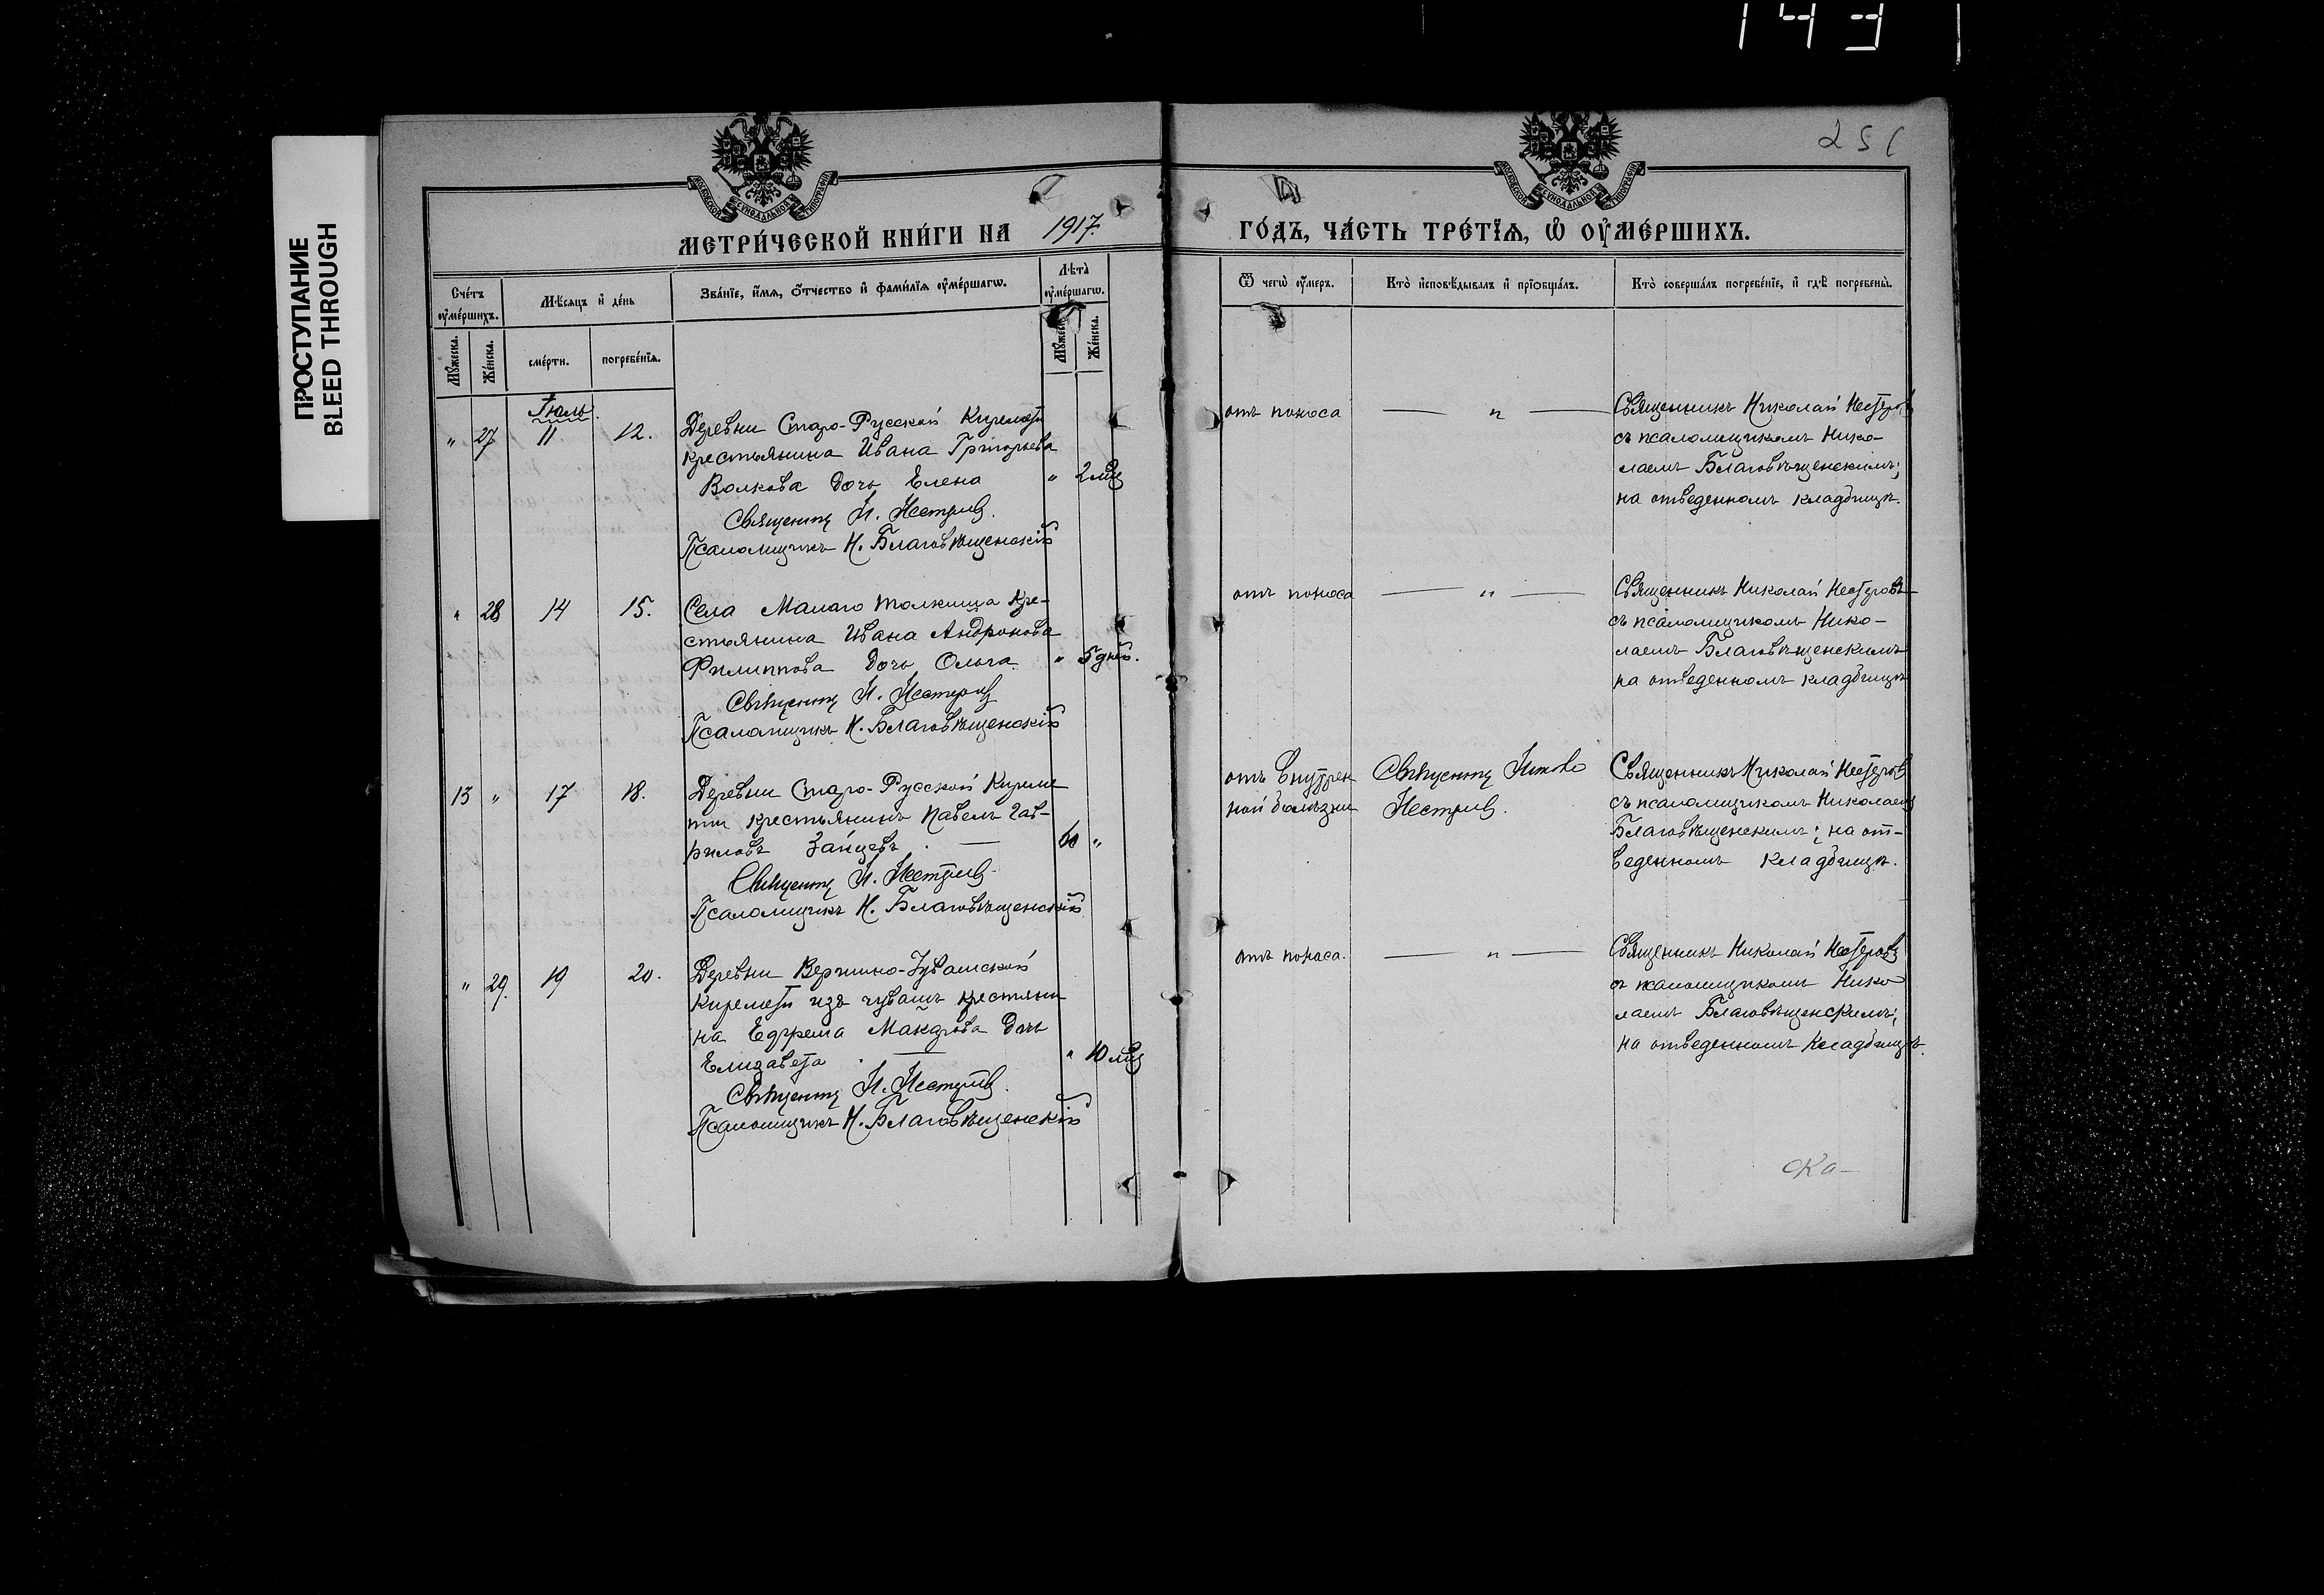 143
ПРОСТУПАНИЕ
BLEED THROUGH
251
МОСКОВСКОЙ СУНОДАЛЬНОЙ ТИПОГРАФІИ
МОСКОВСКОЙ СУНОДАЛЬНОЙ ТИПОГРАФІИ
МЕТРИ́ЧЕСКОЙ КНИ́ГИ НА 1917. ГО́ДЪ, ЧА́СТЬ ТРЕ́ТЇѦ, Ѽ ОУМЕ́РШИХЪ.
Сче́тъ оуме́ршихъ.
Мѣ́сяцъ и де́нь
Зва́нїе, и́мѧ, ѻ́тчество и фами́лїѧ оуме́ршагѡ.
Лѣта̀ оуме́ршагѡ.
Ѿ чегѡ̀ оу́меръ.
Кто̀ исповѣ́дывалъ и прїѡбща́лъ.
Кто̀ соверша́лъ погребе́нїе, и гдѣ̀ погребены̀.
Му́жеска.
Же́нска.
сме́рти.
погребе́нїѧ.
Му́жеска.
Же́нска.
Іюль.
" 27 11 12.
Деревни Старо-Русской Киремети
крестьянина Ивана Григорьева
Волкова дочь Елена " 2 мц
Священникъ Н. Нестеровъ.
Псаломщикъ Н. Благовѣщенскій
отъ поноса
— " —
Священникъ Николай Нестеровъ
съ псаломщикомъ Нико-
лаемъ Благовѣщенскимъ;
на отведенномъ кладбищѣ.
" 28 14 15.
Села Малаго Толкиша кре-
стьянина Ивана Андронова
Филиппова дочь Ольга. " 5 дней.
Священникъ Н. Нестеровъ
Псаломщикъ Н. Благовѣщенскій
отъ поноса
— " —
Священникъ Николай Нестеровъ
съ псаломщикомъ Нико-
лаемъ Благовѣщенскимъ
на отведенномъ кладбищѣ
13 " 17 18.
Деревни Старо-Русской Киреме
ти крестьянинъ Павелъ Гав-
риловъ Зайцевъ. — 60 "
Священникъ Н. Нестеровъ
Псаломщикъ Н. Благовѣщенскій
отъ внутрен
ной болѣзни
Священникъ
Нестеровъ.
Священникъ Николай Нестеровъ
съ псаломщикомъ Николаемъ
Благовѣщенскимъ; на от-
веденномъ кладбищѣ.
" 29. 19 20.
Деревни Вершино-Чувашской
Киремети изъ чувашъ крестьяни
на Ефрема Макарова дочь
Елизавета. — " 10 мц
Священникъ Н. Нестеровъ.
Псаломщикъ Н. Благовѣщенскій
отъ поноса.
— " —
Священникъ Николай Нестеровъ
съ псаломщикомъ Нико
лаемъ Благовѣщенскимъ;
на отведенномъ кладбищѣ.
ска-